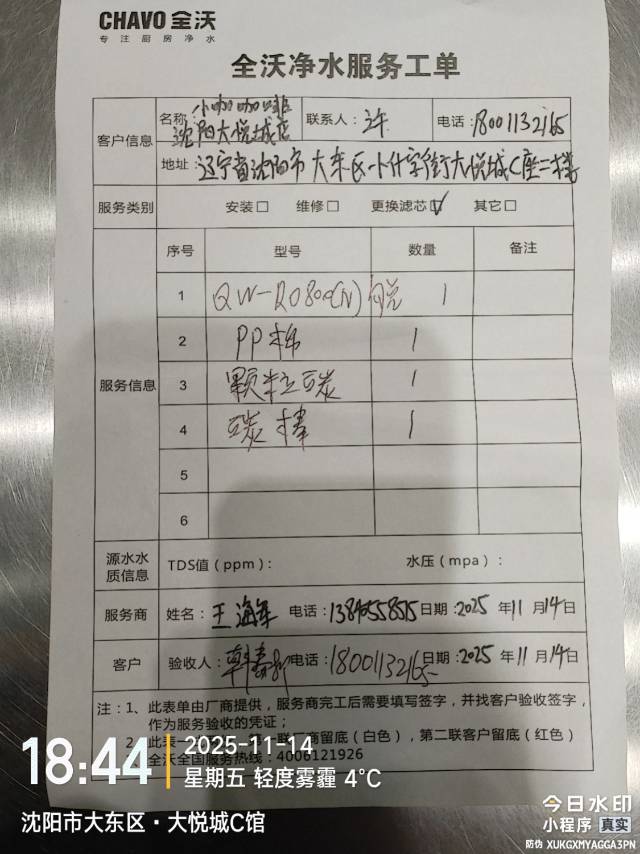 CHAVO 全沃
专注厨房净水
全沃净水服务工单
客户信息
名称: 小咖咖啡
沈阳大悦城店
联系人: 许
电话: 18001132165
地址: 辽宁省沈阳市大东区小什字街大悦城C座二楼
服务类别 安装□ 维修□ 更换滤芯☑ 其它□
服务信息
序号 型号 数量 备注
1 QW-RO800(N) 1
2 PP棉 1
3 颗粒碳 1
4 碳棒 1
5
6
源水水
质信息
TDS值(ppm): 水压(mpa):
服务商 姓名: 王海军 电话: 日期: 2025 年 11 月 14 日
客户 验收人: 电话: 18001132165 日期: 2025 年 11 月 14 日
注:1、此表单由厂商提供,服务商完工后需要填写签字,并找客户验收签字,
作为服务验收的凭证;
2、此表一 联厂商留底(白色),第二联客户留底(红色)
全沃全国服务热线:4006121926
18:44
2025-11-14
星期五 轻度雾霾 4°C
沈阳市大东区·大悦城C馆
今日水印
小程序 真实
防伪 XUKGXMYAGGA3PN